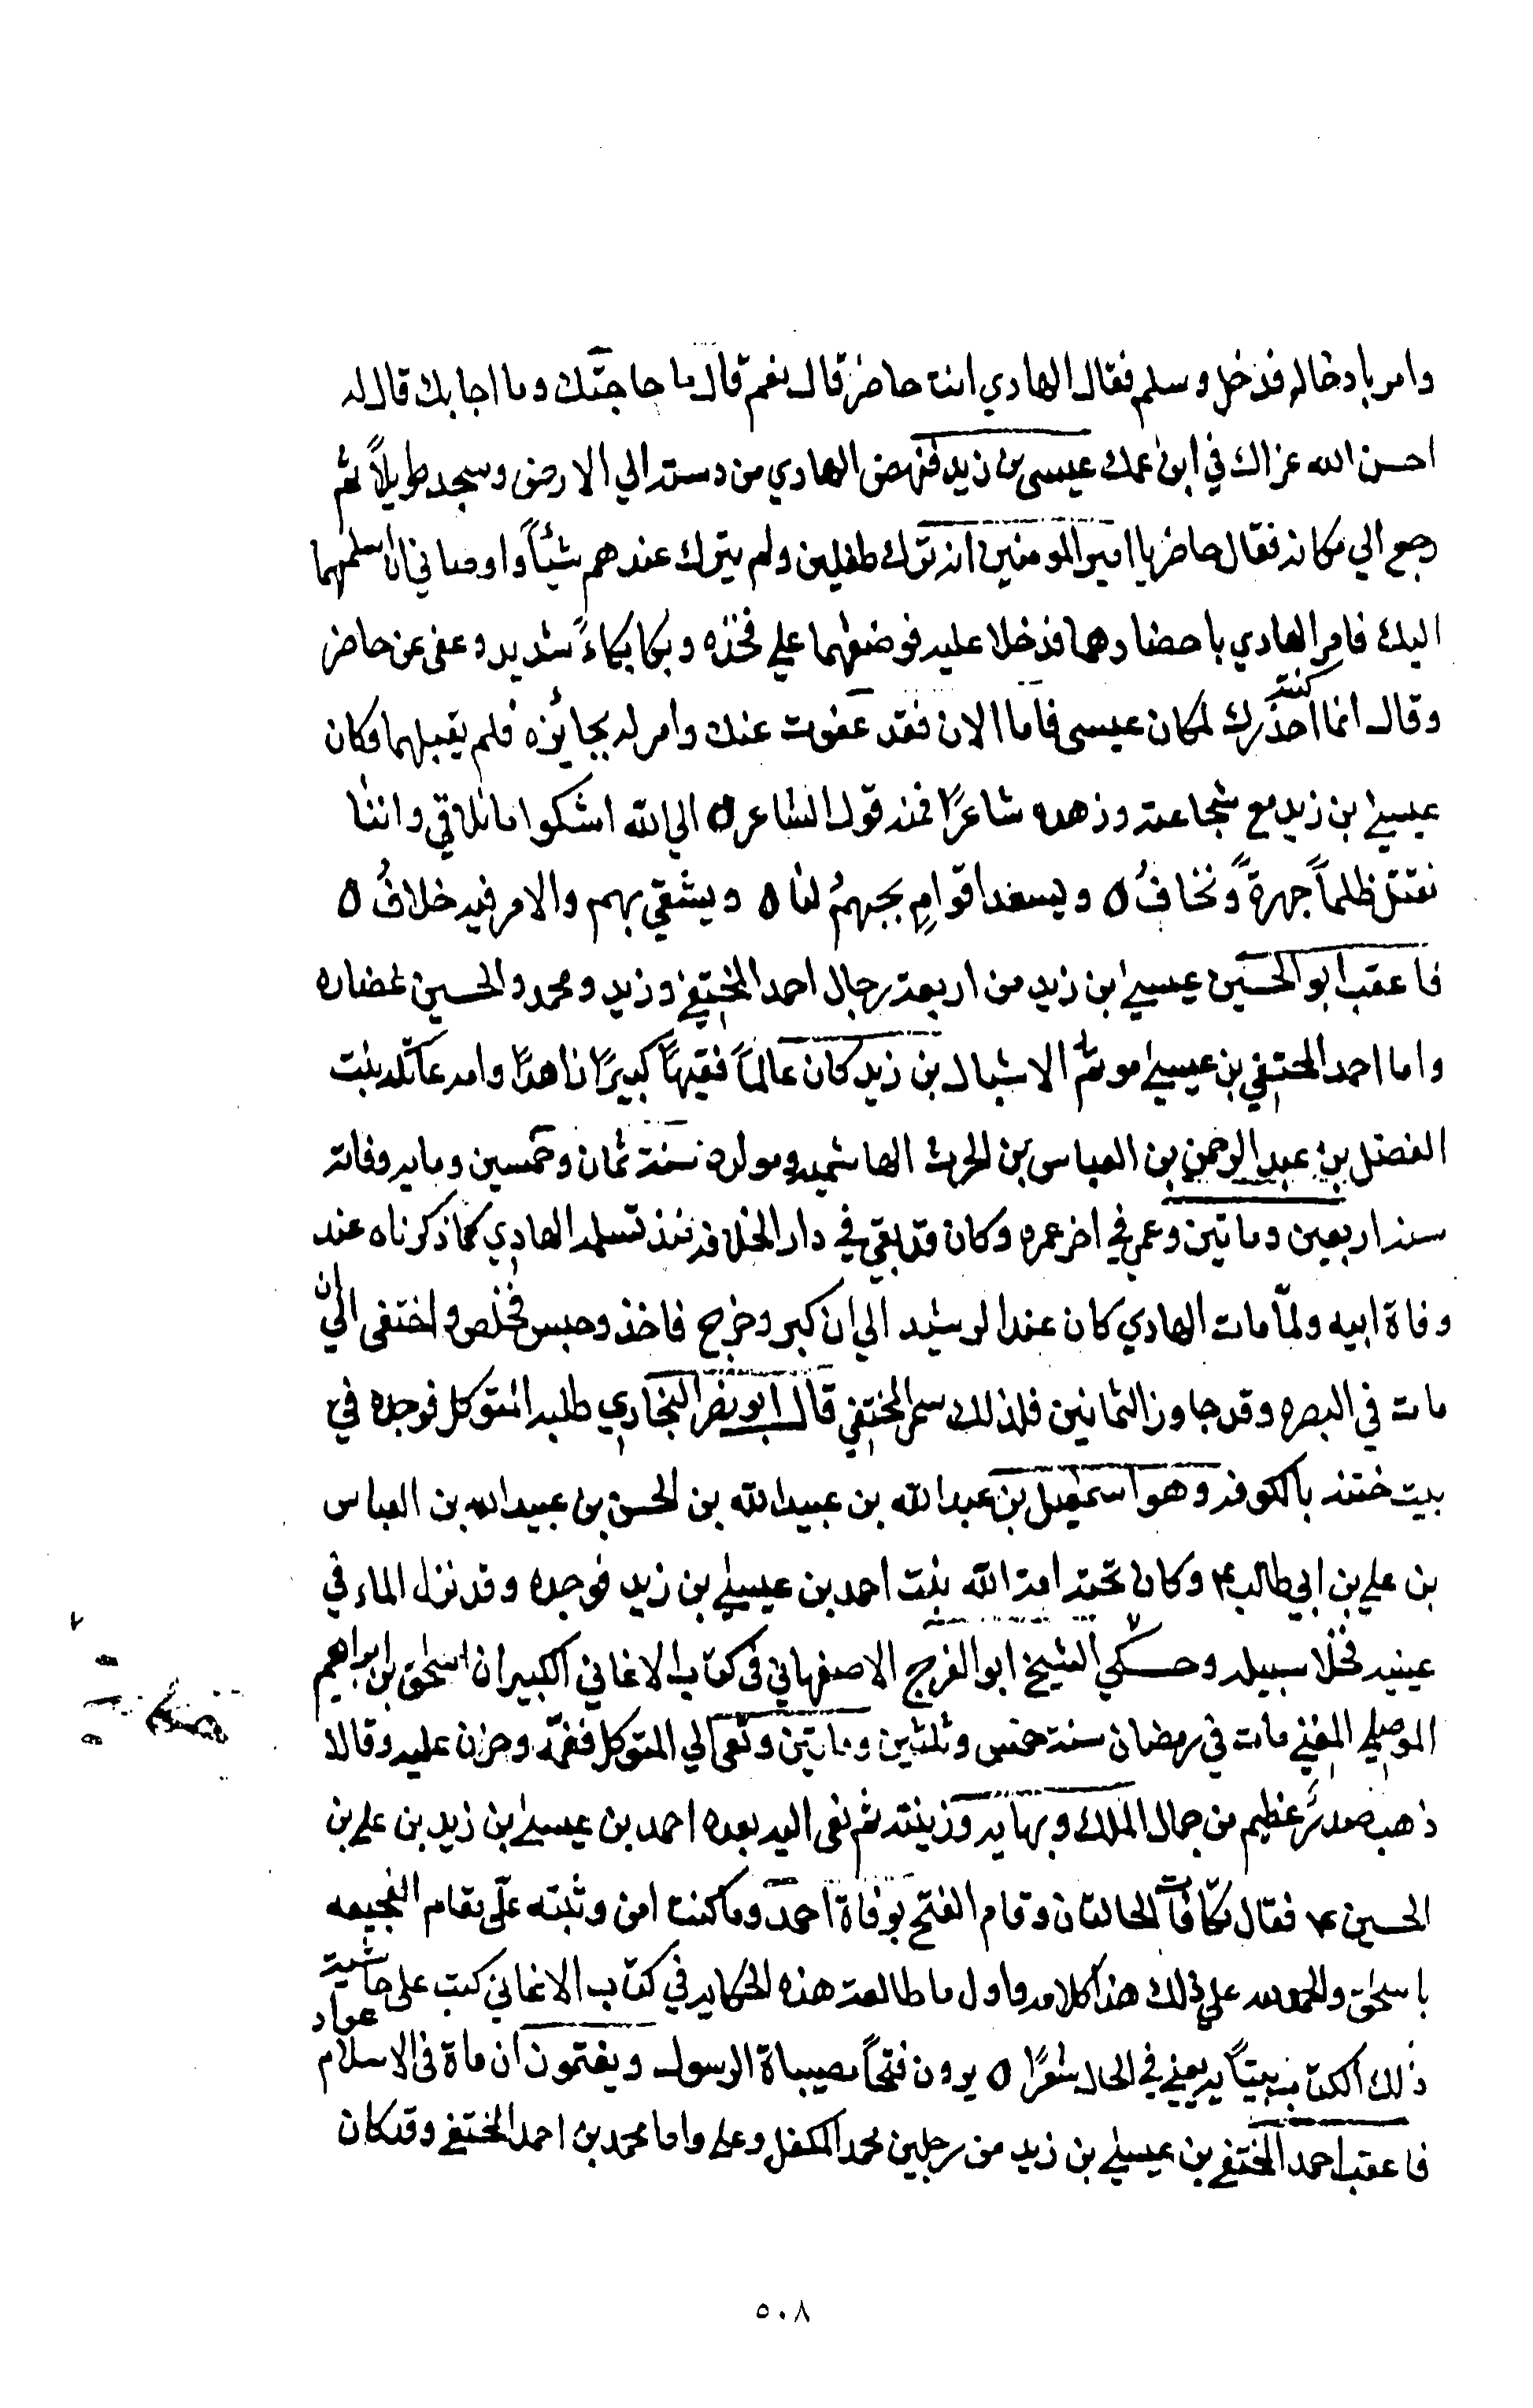 وامر بادخاله فدخل وسلم فقال الهادي انت حاضر قال نعم قال ما حاجتك وما اجابك قال له
احسن الله عزاك في ابن عمك عيسى بن زيد فنهض الهادي من دسته الي الارض وسجد طويلاً ثم
رجع الي مكانه فقال حاضر يا امير المومنين انه ترك طفلين ولم يترك عندهم شيئاً واوصاني ان اسلمهما
اليك فامر الهادي باحضارهما فدخلا عليه فوضعهما علي فخذه وبكا بكاءً شديد وعفى عن حاضر
وقال انما كنت احذرك لمكان عيسى فاما الان فقد عفوت عنك وامر له بجائزه فلم يقبلها وكان
عيسي ابن زيد مع شجاعته وزهده شاعرًا فمنه قول الشاعر ٥ الي الله اشكوا ما نلاقي واننا
نقتل ظلماً جهرةً ونخافُ ٥ ويسعد اقوامٍ بحبهمُ لنا ٥ ويشقي بهم والامر فيه خلافُ ٥
فاعقب ابو الحسين عيسي ابن زيد من اربعة رجال احمد المختفي وزيد ومحمد والحسين غضاره
واما احمد المختفي بن عيسي موتم الاشبال بن زيد كان عالماً فقيهًا كبيرًا زاهدًا وامه عاتكه بنت
الفضل بن عبد الرحمن بن العباس بن الحرث الهاشميه ومولده سنة ثمان وخمسين ومايه وفاته
سنه اربعين وماتين وعمي في اخر عمره وكان قد بقي في دار الخلافه منذ تسلمه الهادي كما ذكرناه عند
وفاة ابيه ولمّا مات الهادي كان عند الرشيد الي ان كبر وخرج فاخذ وحبس فخلص واختفى الي ان
مات في البصره وقد جاوز الثمانين فلذلك سمي المختفي قال ابو نصر البخاري طلبه المتوكل فوجده في
بيت ختنه بالكوفه وهو اسمعيل بن عبد الله بن عبيد الله بن الحسن بن عبيد الله بن العباس
بن علي بن ابي طالب ع وكان تحته امة الله بنت احمد بن عيسي بن زيد فوجده وقد نزل الماء في
عينيه فخلا سبيله وحكي الشيخ ابو الفرج الاصفهاني في كتاب الاغاني الكبير ان اسحق بن ابراهيم
الموصلي المغني مات في رمضان سنة خمس وثلثين وماتين ونعي الي المتوكل فغمّه وحزن عليه وقال
ذهب صدرٌ عظيم من جمال الملك وبهايه وزينته ثم نعى اليه بعده احمد بن عيسي بن زيد بن علي بن
الحسين ع فقال تكافات الحالتان وقام الفتح بوفاة احمد وما كنت امن وثبته علّى مقام الفجيعه
باسحق والحمد لله علي ذلك هذا كلامه واول ما طالعت هذه الحكايه في كتاب الاغاني كتبت على حاشية
ذلك الكتاب بيتاً في الحال شعرًا ٥ يرون فتحاً مصيباة الرسول ويغتمون ان ماة في الاسلام عواد
فاعقب احمد المختفي بن عيسي بن زيد من رجلين محمد المكفل وعلي واما محمد بن احمد المختفي وقد كان
٥٠٨